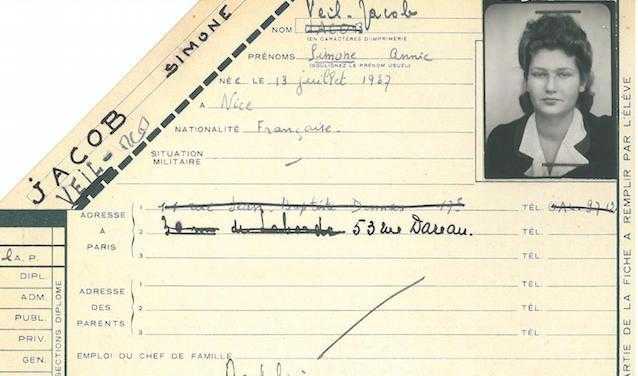 JACOB SIMONE
VEIL-
Veil-Jacob
NOM JACOB
(EN CARACTÈRES D'IMPRIMERIE)
PRÉNOMS Simone Annie
(SOULIGNEZ LE PRÉNOM USUEL)
NÉE LE 13 juillet 1927
A Nice
NATIONALITÉ Française.
SITUATION
MILITAIRE –
ADRESSE A PARIS
1 11 rue Jean-Baptiste Dumas 17e TÉL.
2 30 rue de Laborde 53 rue Dareau. TÉL.
3 TÉL.
ADRESSE DES PARENTS
1 TÉL.
2 TÉL.
3 TÉL.
EMPLOI DU CHEF DE FAMILLE
A. P.
DIPL.
ADM.
PUBL.
PRIV.
GEN.
SECTIONS DIPLOME
PARTIE DE LA FICHE A REMPLIR PAR L'ÉLÈVE